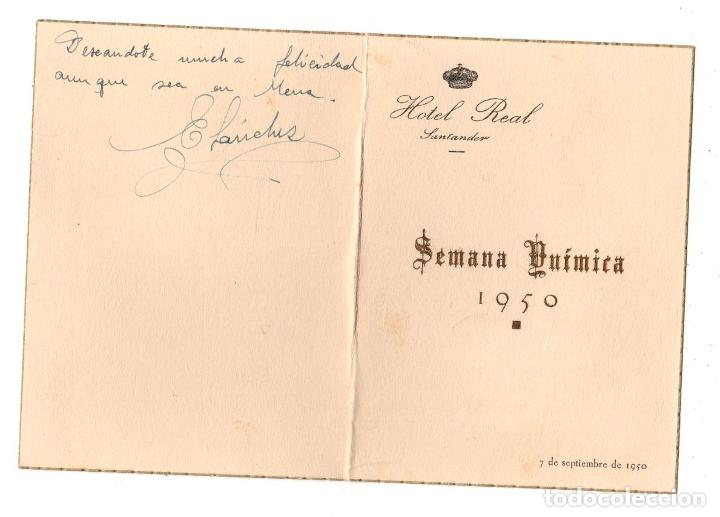 Deseandote mucha felicidad
aunque sea en Mena.
E Sánchez
Hotel Real
Santander
Semana Química
1950
7 de septiembre de 1950
todocoleccion